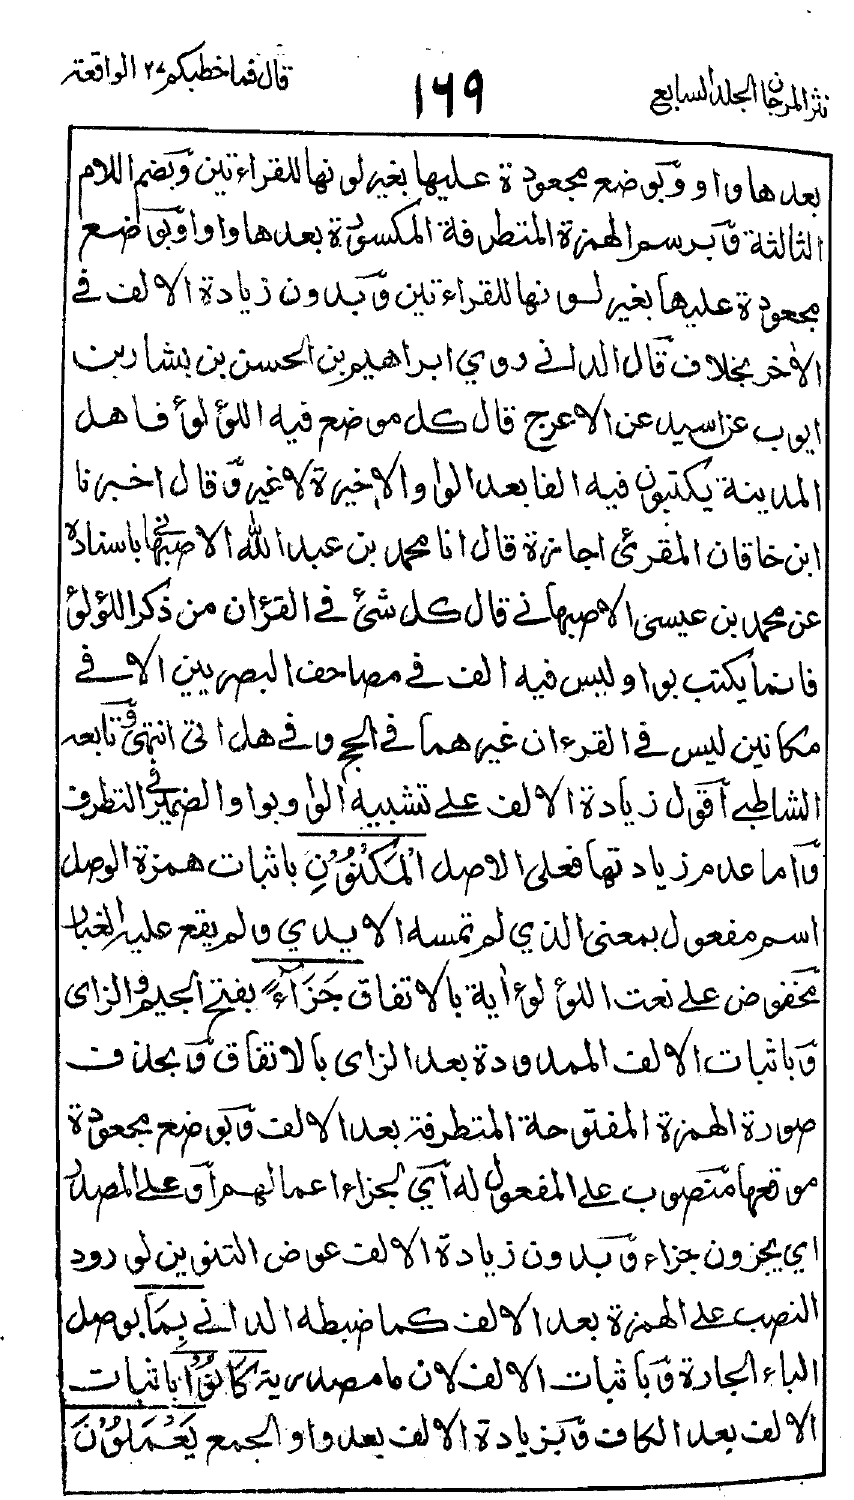 نثر المرجان الجلد السابع
١٦٩
قال فما خطبكم ٢٧ الواقعة
بعدها واو وبوضع مجعودة عليها بغير لونها للقراءتين وبضم اللام
الثالثة وبرسم الهمزة المتطرفة المكسورة بعدها واوا وبوضع
مجعودة عليها بغير لونها للقراءتين وبدون زيادة الالف في
الأخر بخلاف قال الداني روي ابراهيم بن الحسن بن بشار بن
ايوب عن اسيد عن الاعرج قال كل موضع فيه اللؤلؤ فاهل
المدينة يكتبون فيه الفا بعد الواو الاخيرة لا غير وقال اخبرنا
ابن خاقان المقرئ اجازة قال انا محمد بن عبد الله الاصبهاني باسناده
عن محمد بن عيسى الاصبهاني قال كل شئ في القرءان من ذكر اللؤلؤ
فانما يكتب بواو ليس فيه الف في مصاحف البصريين الا في
مكانين ليس في القرءان غيرهما في الحج وفي هل اتى انتهى وتابعه
الشاطبي أقول زيادة الالف على تشبيه الواو بواو الضمير في التطرف
وأما عدم زيادتها فعلى الاصل الْمَكْنُوْنِ باثبات همزة الوصل
اسم مفعول بمعنى الذي لم تمسه الايدي ولم يقع عليه الغبار
مخفوض على نعت اللؤلوء أية بالاتفاق جَزَآءًۢ بفتح الجيم والزاى
وباثبات الالف الممدودة بعد الزاى بالاتفاق وبحذف
صورة الهمزة المفتوحة المتطرفة بعد الالف وبوضع مجعودة
موقعها منصوب على المفعول له أي لجزاء اعمالهم أو على المصدر
اي يجزون جزاء وبدون زيادة الالف عوض التنوين لورود
النصب على الهمزة بعد الالف كما ضبطه الداني بِمَا بوصل
الباء الجارة وباثبات الالف لان ما مصدرية كَانُوْا باثبات
الالف بعد الكاف وبزيادة الالف بعد واو الجمع يَعْمَلُوْنَ